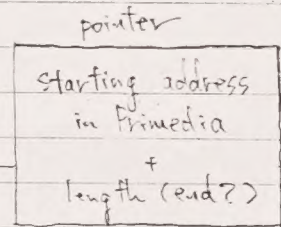 pointer
starting address
in Primedia
+
length (end?)